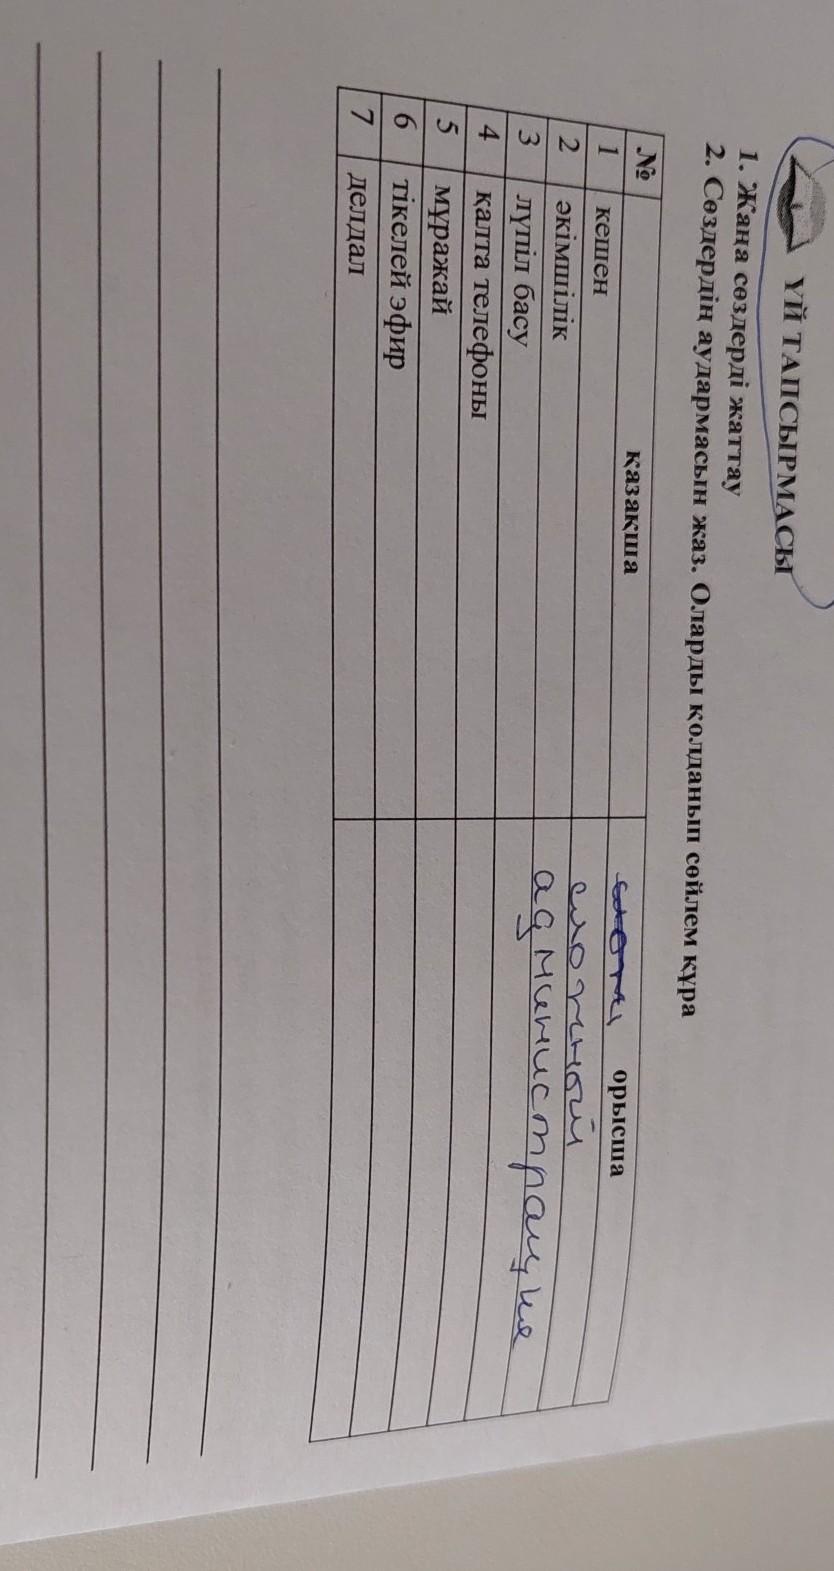 ҮЙ ТАПСЫРМАСЫ
1. Жаңа сөздерді жаттау
2. Сөздердің аудармасын жаз. Оларды қолданып сөйлем құра
№ қазақша орысша
1 кешен сложный
2 әкімшілік администрация
3 лүпіл басу
4 қалта телефоны
5 мұражай
6 тікелей эфир
7 делдал